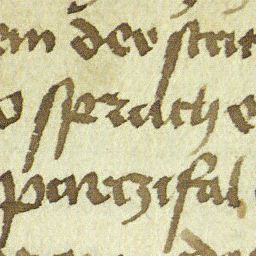 em der star
o sprach e
parczifal